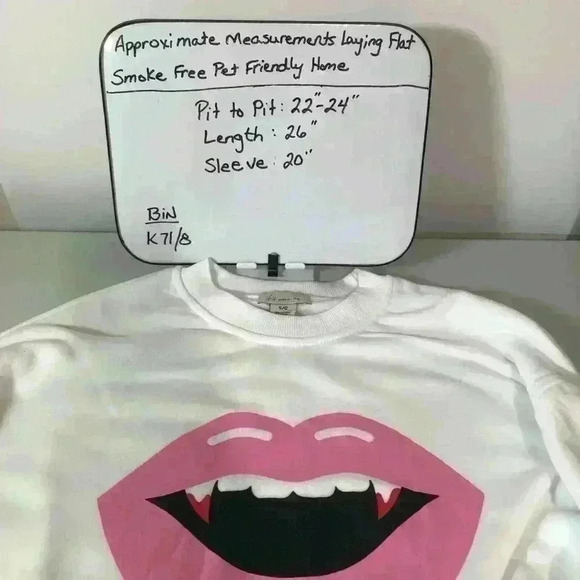 Approximate Measurements Laying Flat
Smoke Free Pet Friendly Home
Pit to Pit: 22"-24"
Length: 26"
Sleeve: 20"
BiN
K71/8